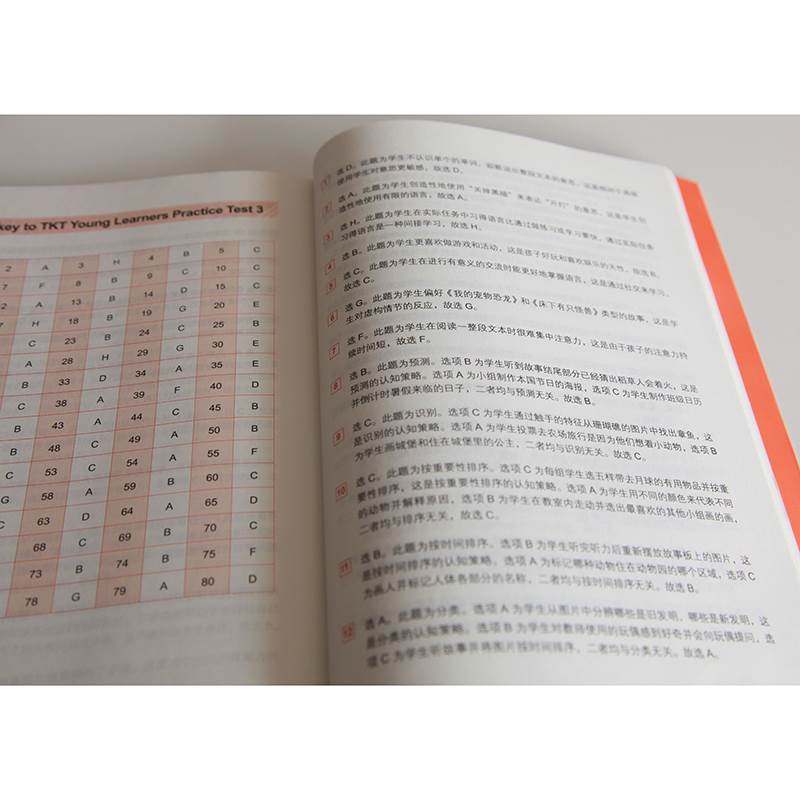 key to TKT Young Learners Practice Test 3
2 A 3 H 4 B 5 C
7 F 8 B 9 C 10 C
12 A 13 B 14 D 15 C
17 H 18 B 19 C 20 E
23 B 24 C 25 B
A 28 H 29 G 30 E
B 33 D 34 A 35 E
C 38 A 39 F 40 D
B 43 D 44 C 45 B
C 48 C 49 A 50 B
C 53 C 54 A 55 F
G 58 A 59 B 60 C
63 D 64 A 65 D
68 C 69 B 70 C
73 B 74 B 75 F
78 G 79 A 80 D
1 选 D。此题为学生不认识单个的单词，
使用学生对意思更敏感，故选 D。
2 选 A。此题为学生创造性地使用“关掉黑暗”来表达“开灯”的意思，这是学生创
造性地使用有限的语言，故选 A。
3 选 H。此题为学生在实际任务中习得语言比通过做练习或学习要快，通过实际任务
习得语言是一种间接学习，故选 H。
4 选 B。此题为学生更喜欢做游戏和活动，这是孩子好玩和喜欢娱乐的天性，故选 B。
5 选 C。此题为学生在进行有意义的交流时能更好地掌握语言，这是通过交来学习，
故选 C。
6 选 G。此题为学生偏好《我的宠物恐龙》和《床下有只怪兽》类型的故事，这是学
生对虚构情节的反应，故选 G。
7 选 F。此题为学生在阅读一整段文本时很难集中注意力，这是由于孩子的注意力持
续时间短，故选 F。
8 选 B。此题为预测。选项 B 为学生听到故事结尾部分已经猜出稻草人会着火，这是
预测的认知策略。选项 A 为小组制作本国节日的海报，选项 C 为学生制作班级日历
并倒计时暑假来临的日子，二者均与预测无关。故选 B。
9 选 C。此题为识别。选项 C 为学生通过触手的特征从珊瑚礁的图片中找出章鱼，这
是识别的认知策略。选项 A 为学生投票去农场旅行是因为他们想看小动物，选项 B
为学生画城堡和住在城堡里的公主，二者均与识别无关。故选 C。
10 选 C。此题为按重要性排序。选项 C 为每组学生选五样带去月球的有用物品并按重
要性排序，这是按重要性排序的认知策略。选项 A 为学生用不同的颜色来代表不同
的动物并解释原因，选项 B 为学生在教室内走动并选出最喜欢的其他小组画的画，
二者均与排序无关，故选 C。
11 选 B。此题为按时间排序。选项 B 为学生听完听力后重新摆放故事板上的图片，这
是按时间排序的认知策略。选项 A 为标记哪种动物住在动物园的哪个区域，选项 C
为画人并标记人体各部分的名称，二者均与按时间排序无关。故选 B。
12 选 A。此题为分类。选项 A 为学生从图片中分辨哪些是旧发明，哪些是新发明，这
是分类的认知策略。选项 B 为学生对教师使用的玩偶感到好奇并会向玩偶提问，选
项 C 为学生听故事并将图片按时间排序，二者均与分类无关。故选 A。